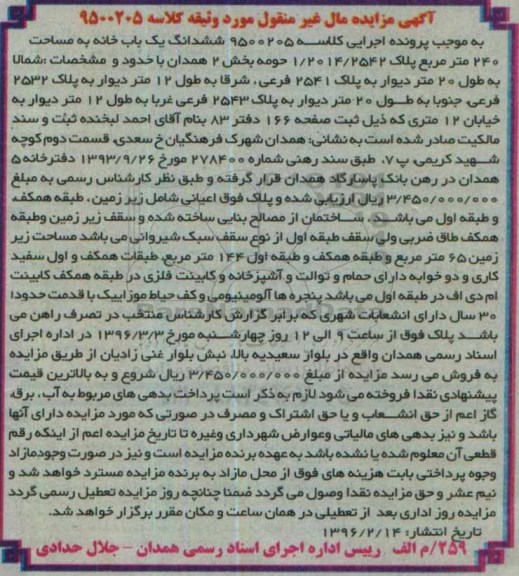 آگهی مزایده مال غیر منقول مورد وثیقه کلاسه ۹۵۰۰۲۰۵
به موجب پرونده اجرایی کلاسه ۹۵۰۰۲۰۵ ششدانگ یک باب خانه به مساحت
۲۴۰ متر مربع پلاک ۱/۲۰۱۴/۲۵۴۲ حومه بخش ۲ همدان با حدود و مشخصات :شمالا
به طول ۲۰ متر دیوار به پلاک ۲۵۴۱ فرعی، شرقا به طول ۱۲ متر دیوار به پلاک ۲۵۳۲
فرعی، جنوبا به طول ۲۰ متر دیوار به پلاک ۲۵۴۳ فرعی غربا به طول ۱۲ متر دیوار به
خیابان ۱۲ متری که ذیل ثبت صفحه ۱۶۶ دفتر ۸۳ بنام آقای احمد لبخنده ثبت و سند
مالکیت صادر شده است به نشانی: همدان شهرک فرهنگیان خ سعدی، قسمت دوم کوچه
شهید کریمی، پ۷. طبق سند رهنی شماره ۲۷۸۴۰۰ مورخ ۱۳۹۳/۹/۲۶ دفترخانه ۵
همدان در رهن بانک پاسارگاد همدان قرار گرفته و طبق نظر کارشناس رسمی به مبلغ
۳/۴۵۰/۰۰۰/۰۰۰ ریال ارزیابی شده و پلاک فوق اعیانی شامل زیر زمین، طبقه همکف،
و طبقه اول می باشد. ساختمان از مصالح بنایی ساخته شده و سقف زیر زمین وطبقه
همکف طاق ضربی ولی سقف طبقه اول از نوع سقف سبک شیروانی می باشد مساحت زیر
زمین ۶۵ متر مربع و طبقه همکف و طبقه اول ۱۴۴ متر مربع، طبقات همکف و اول سفید
کاری و دو خوابه دارای حمام و توالت و آشپزخانه و کابینت فلزی در طبقه همکف کابینت
ام دی اف در طبقه اول می باشد پنجره ها آلومینیومی و کف حیاط موزاییک با قدمت حدودا
۳۰ سال دارای انشعابات شهری که برابر گزارش کارشناس منتخب در تصرف راهن می
باشد پلاک فوق از ساعت ۹ الی ۱۲ روز چهارشنبه مورخ ۱۳۹۶/۳/۳ در اداره اجرای
اسناد رسمی همدان واقع در بلوار سعیدیه بالا، نبش بلوار غنی زادیان از طریق مزایده
به فروش می رسد مزایده از مبلغ ۳/۴۵۰/۰۰۰/۰۰۰ ریال شروع و به بالاترین قیمت
پیشنهادی نقدا فروخته می شود لازم به ذکر است پرداخت بدهی های مربوط به آب، برق،
گاز اعم از حق انشعاب و یا حق اشتراک و مصرف در صورتی که مورد مزایده دارای آنها
باشد و نیز بدهی های مالیاتی وعوارض شهرداری وغیره تا تاریخ مزایده اعم از اینکه رقم
قطعی آن معلوم شده یا نشده باشد به عهده برنده مزایده است و نیز در صورت وجودمازاد
وجوه پرداختی بابت هزینه های فوق از محل مازاد به برنده مزایده مسترد خواهد شد و
نیم عشر و حق مزایده نقدا وصول می گردد ضمنا چنانچه روز مزایده تعطیل رسمی گردد
مزایده روز اداری بعد از تعطیلی در همان ساعت و مکان مقرر برگزار خواهد شد.
تاریخ انتشار: ۱۳۹۶/۲/۱۴
۲۵۹/م الف رییس اداره اجرای اسناد رسمی همدان - جلال حدادی